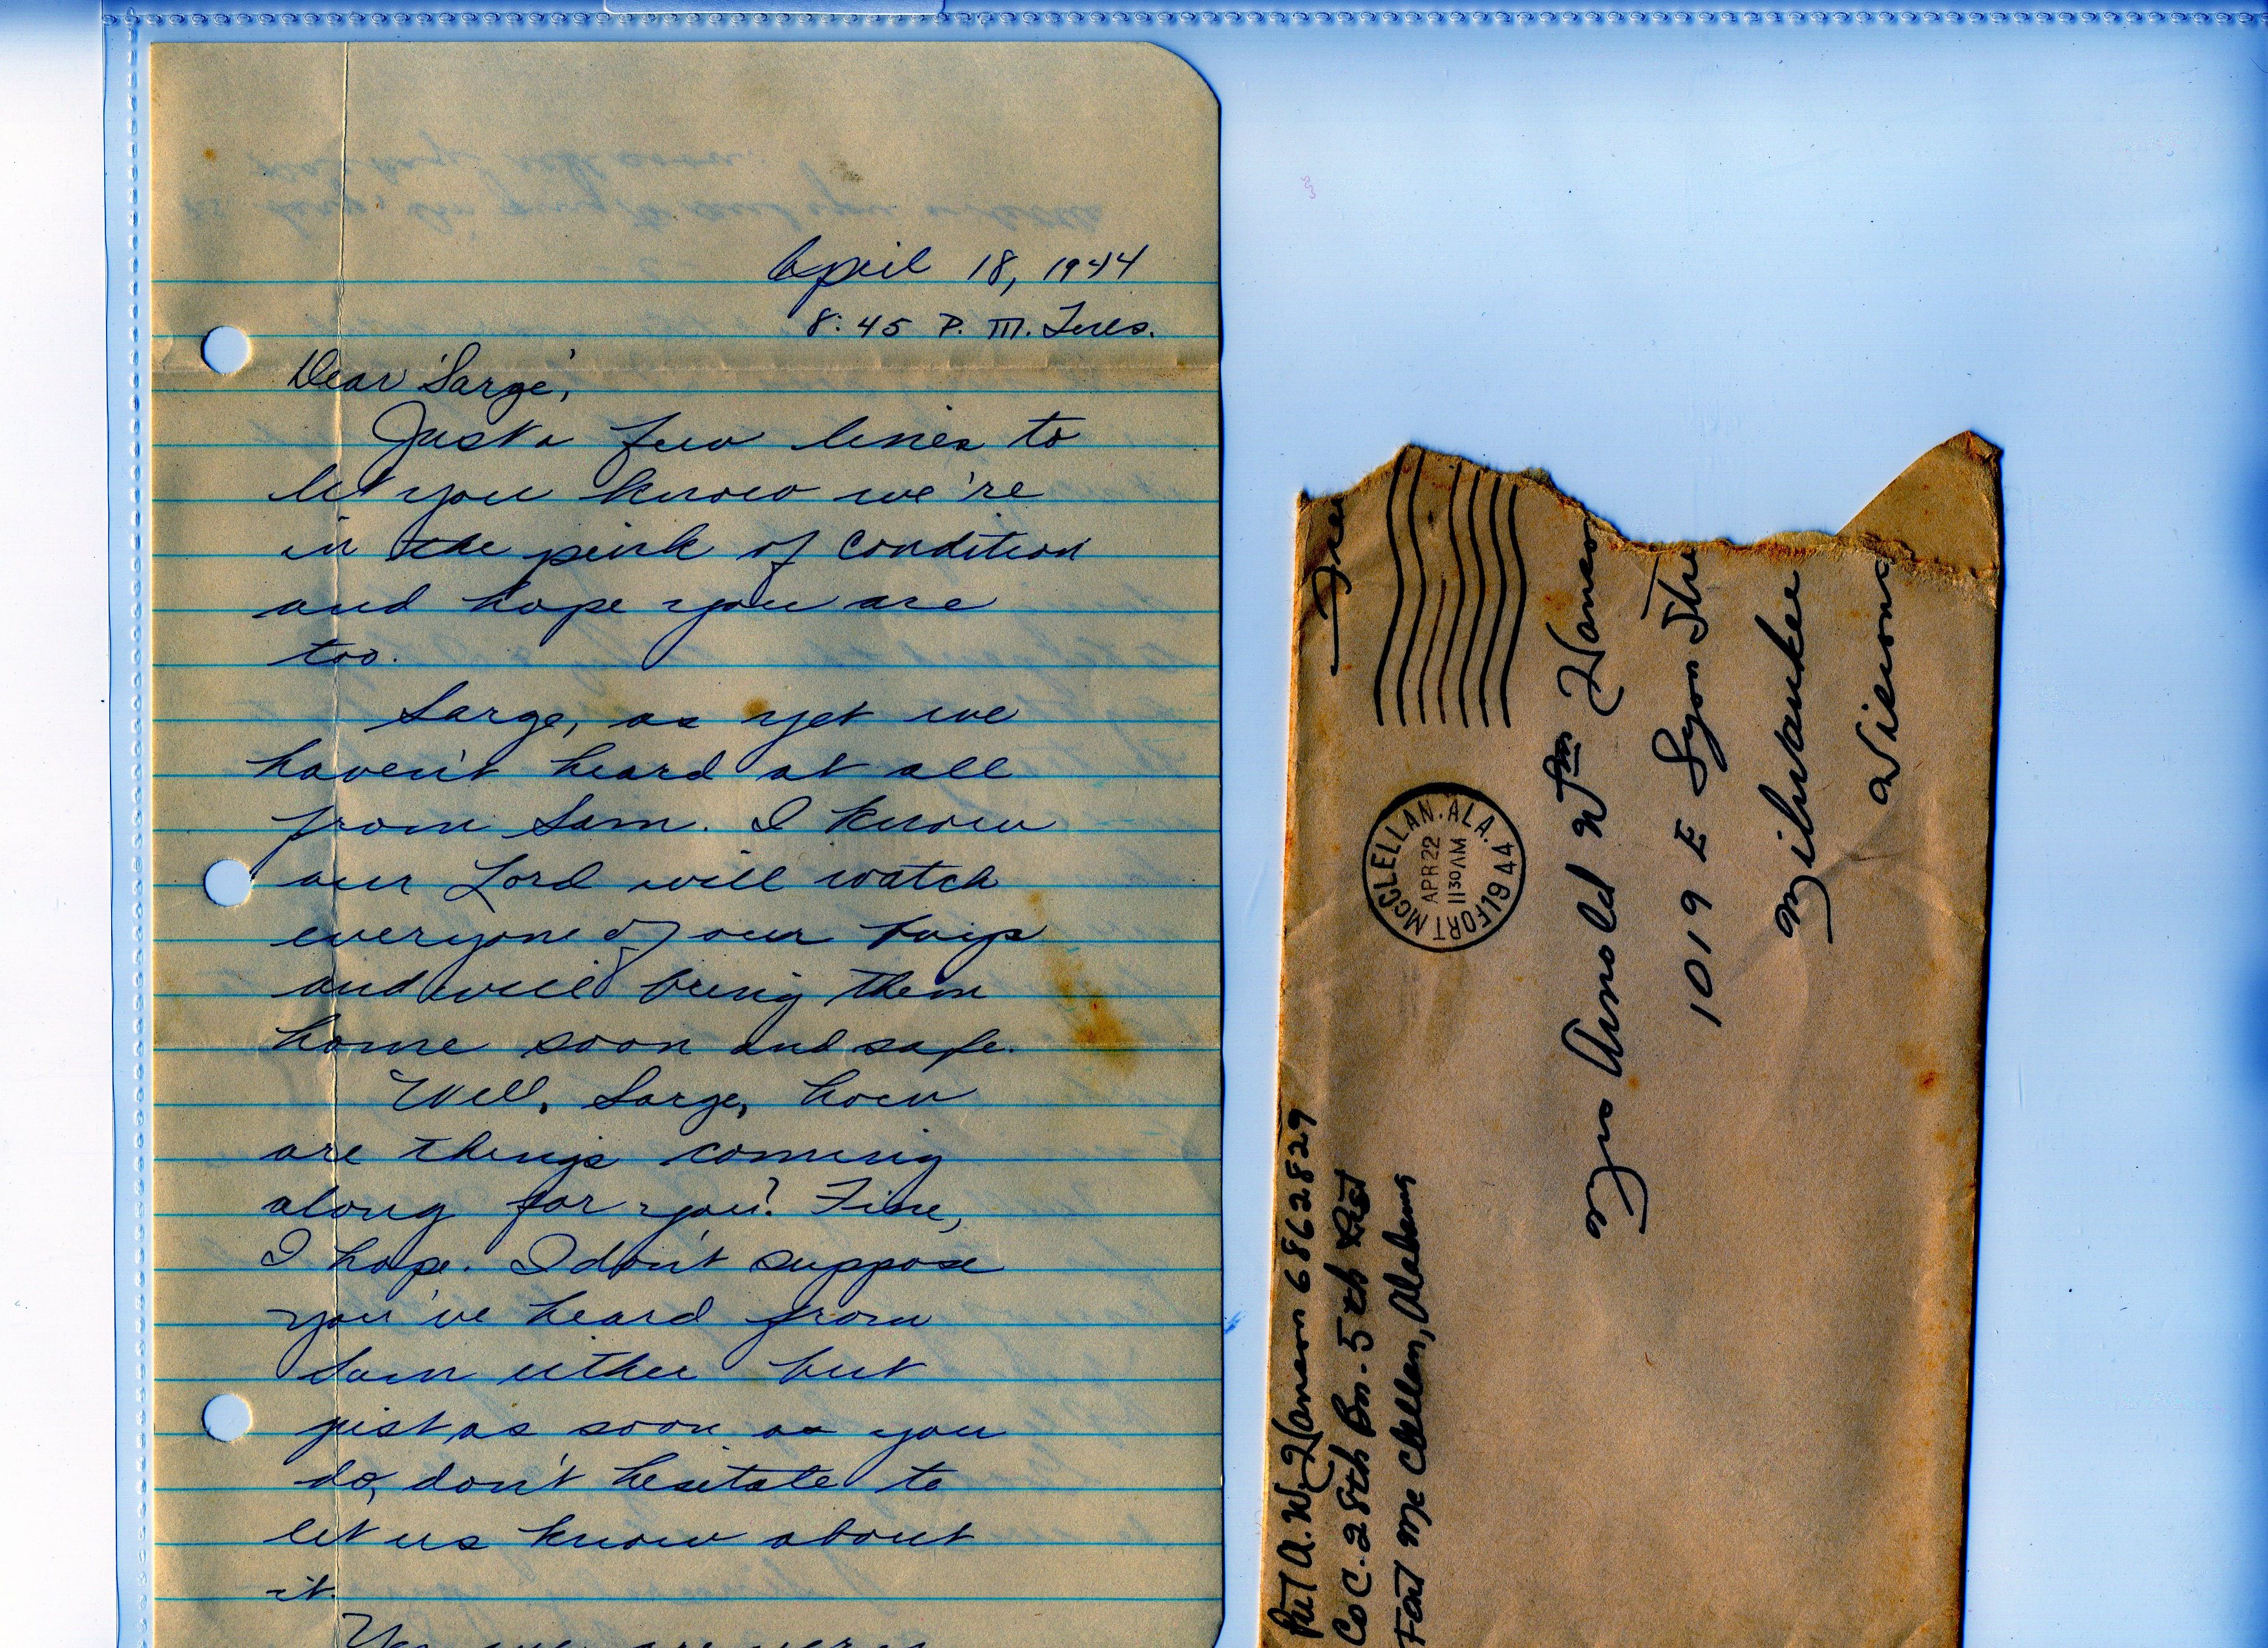 April 18, 1944
8:45 P. M. Tues.
Dear 'Sarge',
Just a few lines to
let you know we're
in the pink of condition
and hope you are
too.
Sarge, as yet we
haven't heard at all
from Sam. I know
our Lord will watch
everyone of our
and will bring them
home soon and safe.
Well, Sarge, how
are things coming
along for you? Fine,
I hope. I don't suppose
you've heard from
Sam either but
just as soon as you
do, don't hesitate to
let us know about
it.
Free
FORT McCLELLAN, ALA.
APR 22
11 30 AM
1944
Mrs Arnold Wm
1019 E Lyon Stre
Milwaukee
Wiscons
Pvt A. W. 6862829
Co C. 28th Bn. 5th
Fort Mc Clellan, Alabama